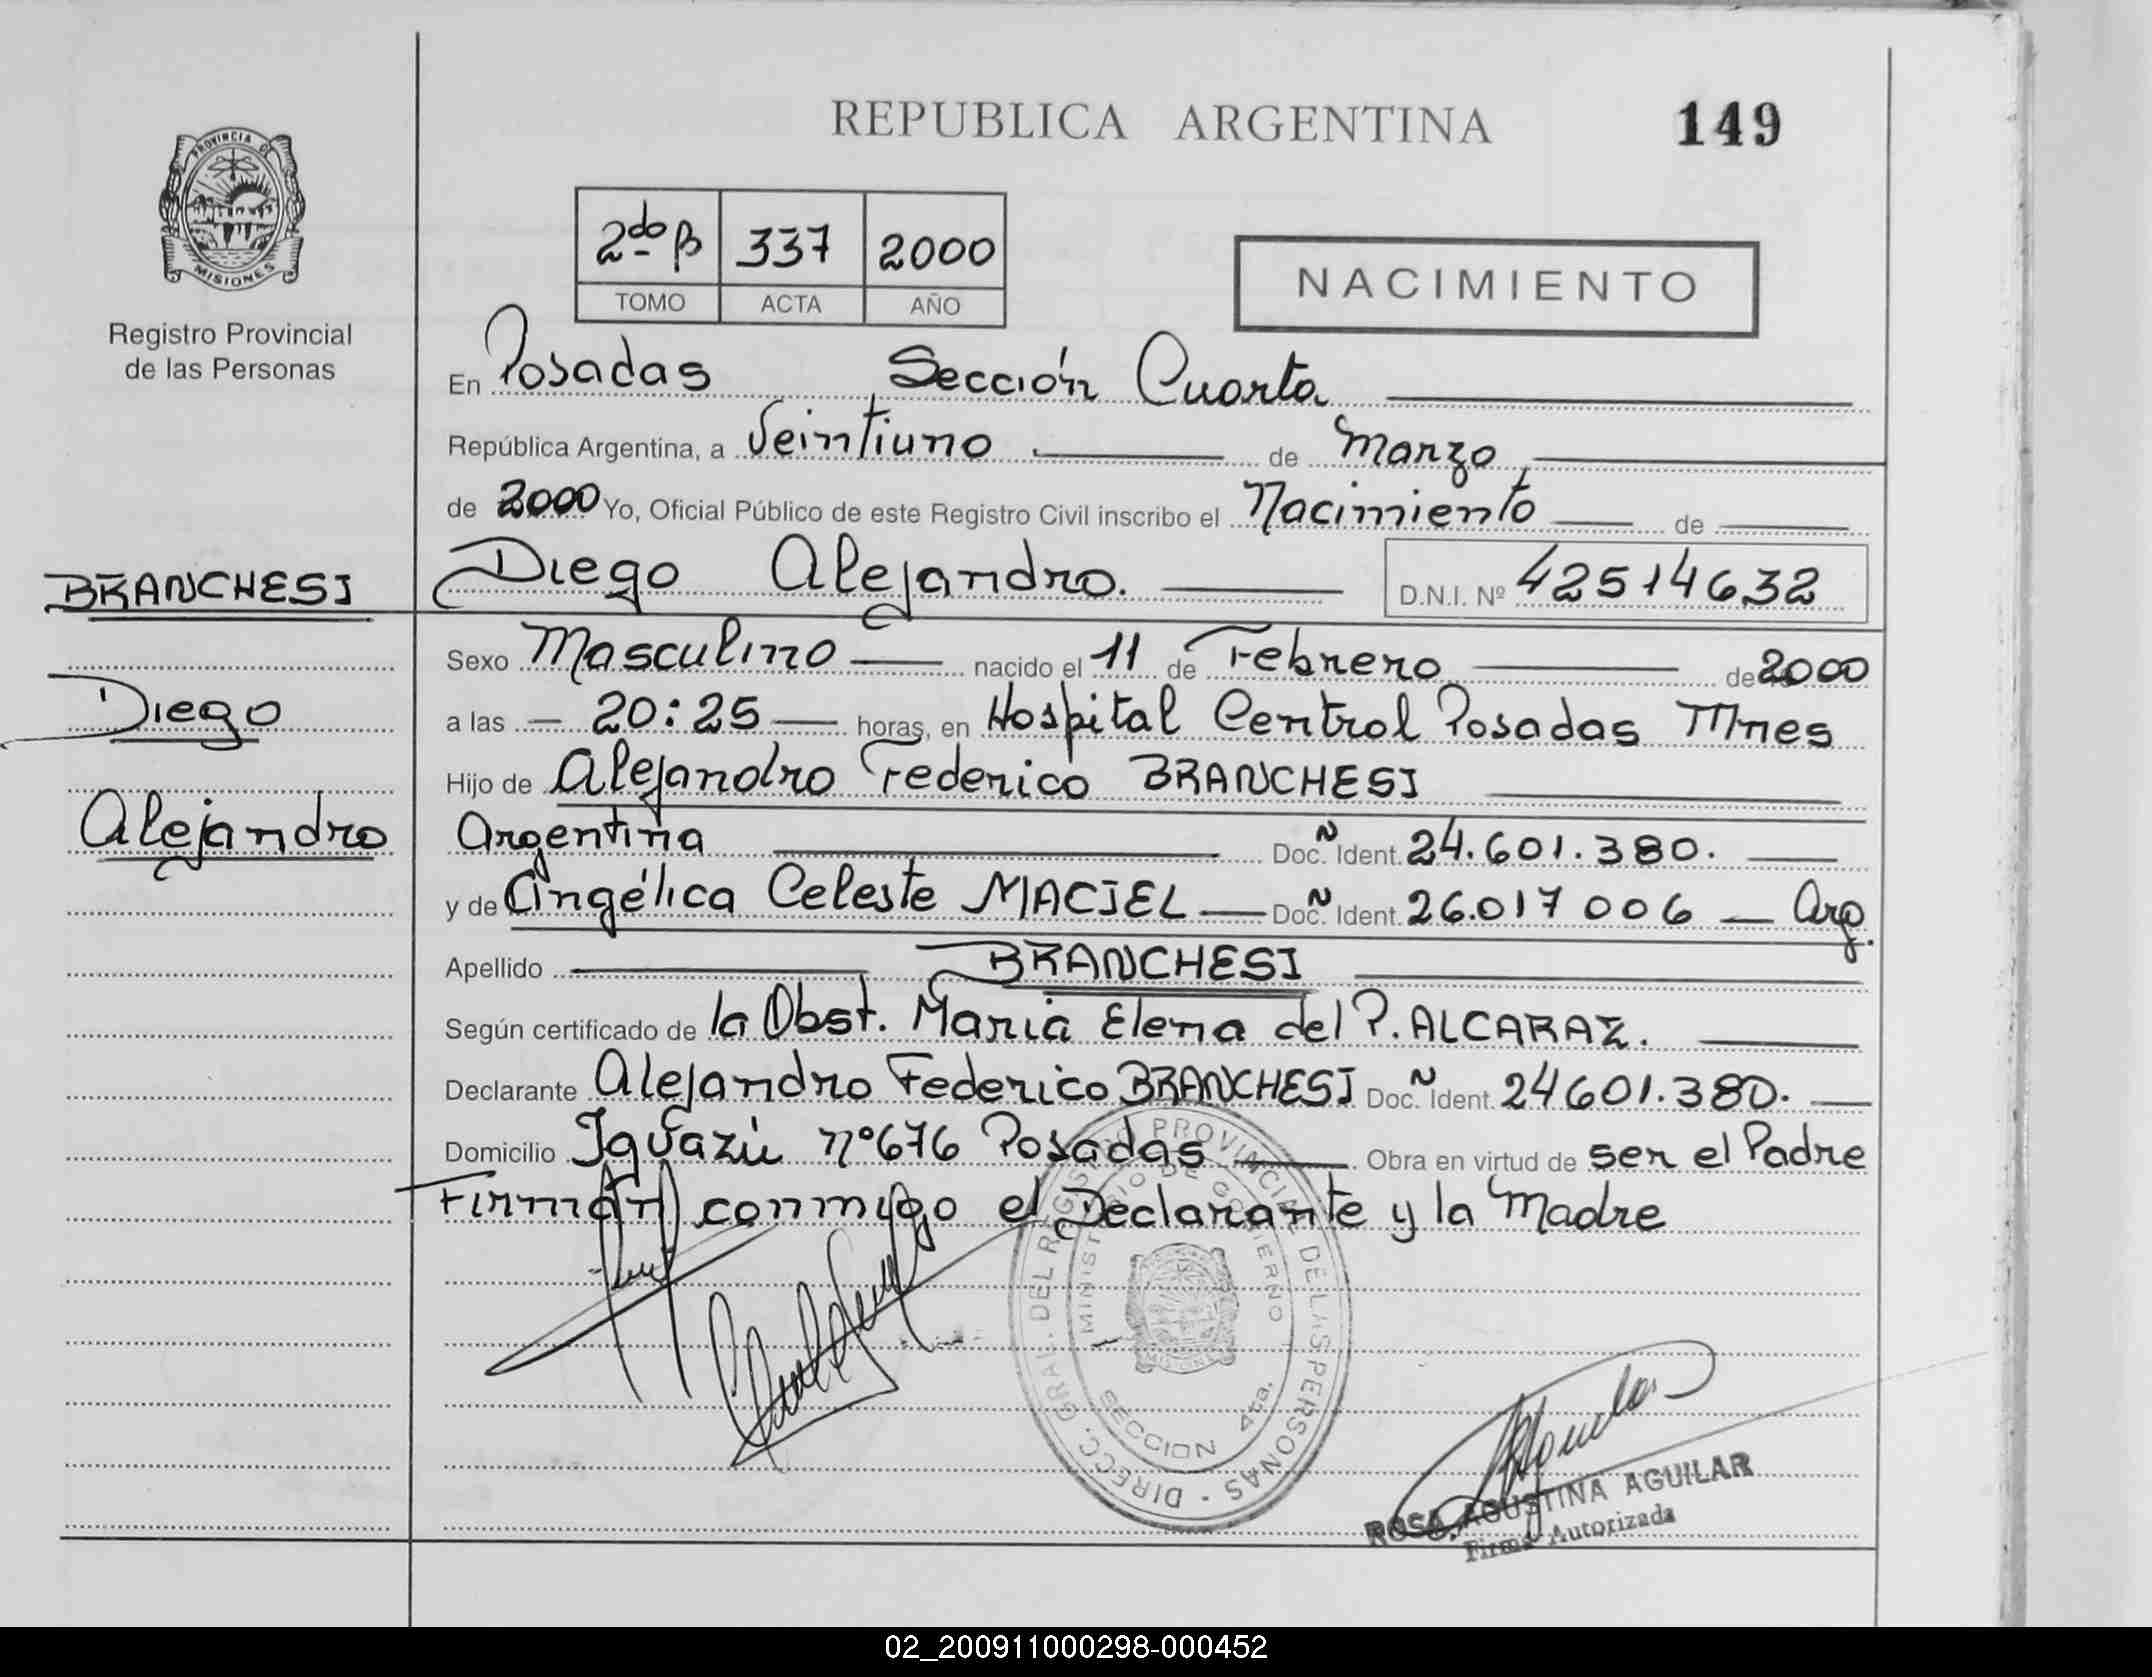 REPUBLICA ARGENTINA
149
PROVINCIA DE
MISIONES
Registro Provincial
de las Personas
2do B 337 2000
TOMO ACTA AÑO
NACIMIENTO
En Posadas Sección Cuarta
República Argentina, a Veintiuno de Marzo
de 2000 Yo, Oficial Público de este Registro Civil inscribo el Nacimiento de
BRANCHESI
Diego Alejandro. D.N.I. Nº 42514632
Sexo Masculino nacido el 11 de Febrero de 2000
Diego
a las 20:25 horas, en Hospital Central Posadas Mnes
Hijo de Alejandro Federico BRANCHESI
Alejandro
Argentina Doc. Ident. 24.601.380.
y de Angélica Celeste MACIEL Doc. Ident. 26.017 006 Arg.
Apellido BRANCHESI
Según certificado de la Obst. Maria Elena del P. ALCARAZ.
Declarante Alejandro Federico BRANCHESI Doc. Ident. 24601.380.
Domicilio Iguazú nº 676 Posadas Obra en virtud de ser el Padre
Firman conmigo el Declarante y la Madre
DIRECC. GRAL. DEL REGISTRO PROVINCIAL DE LAS PERSONAS
MINISTERIO DE GOBIERNO
MISIONES
SECCION 4ta.
ROSA AGUSTINA AGUILAR
Firma Autorizada
02_200911000298-000452